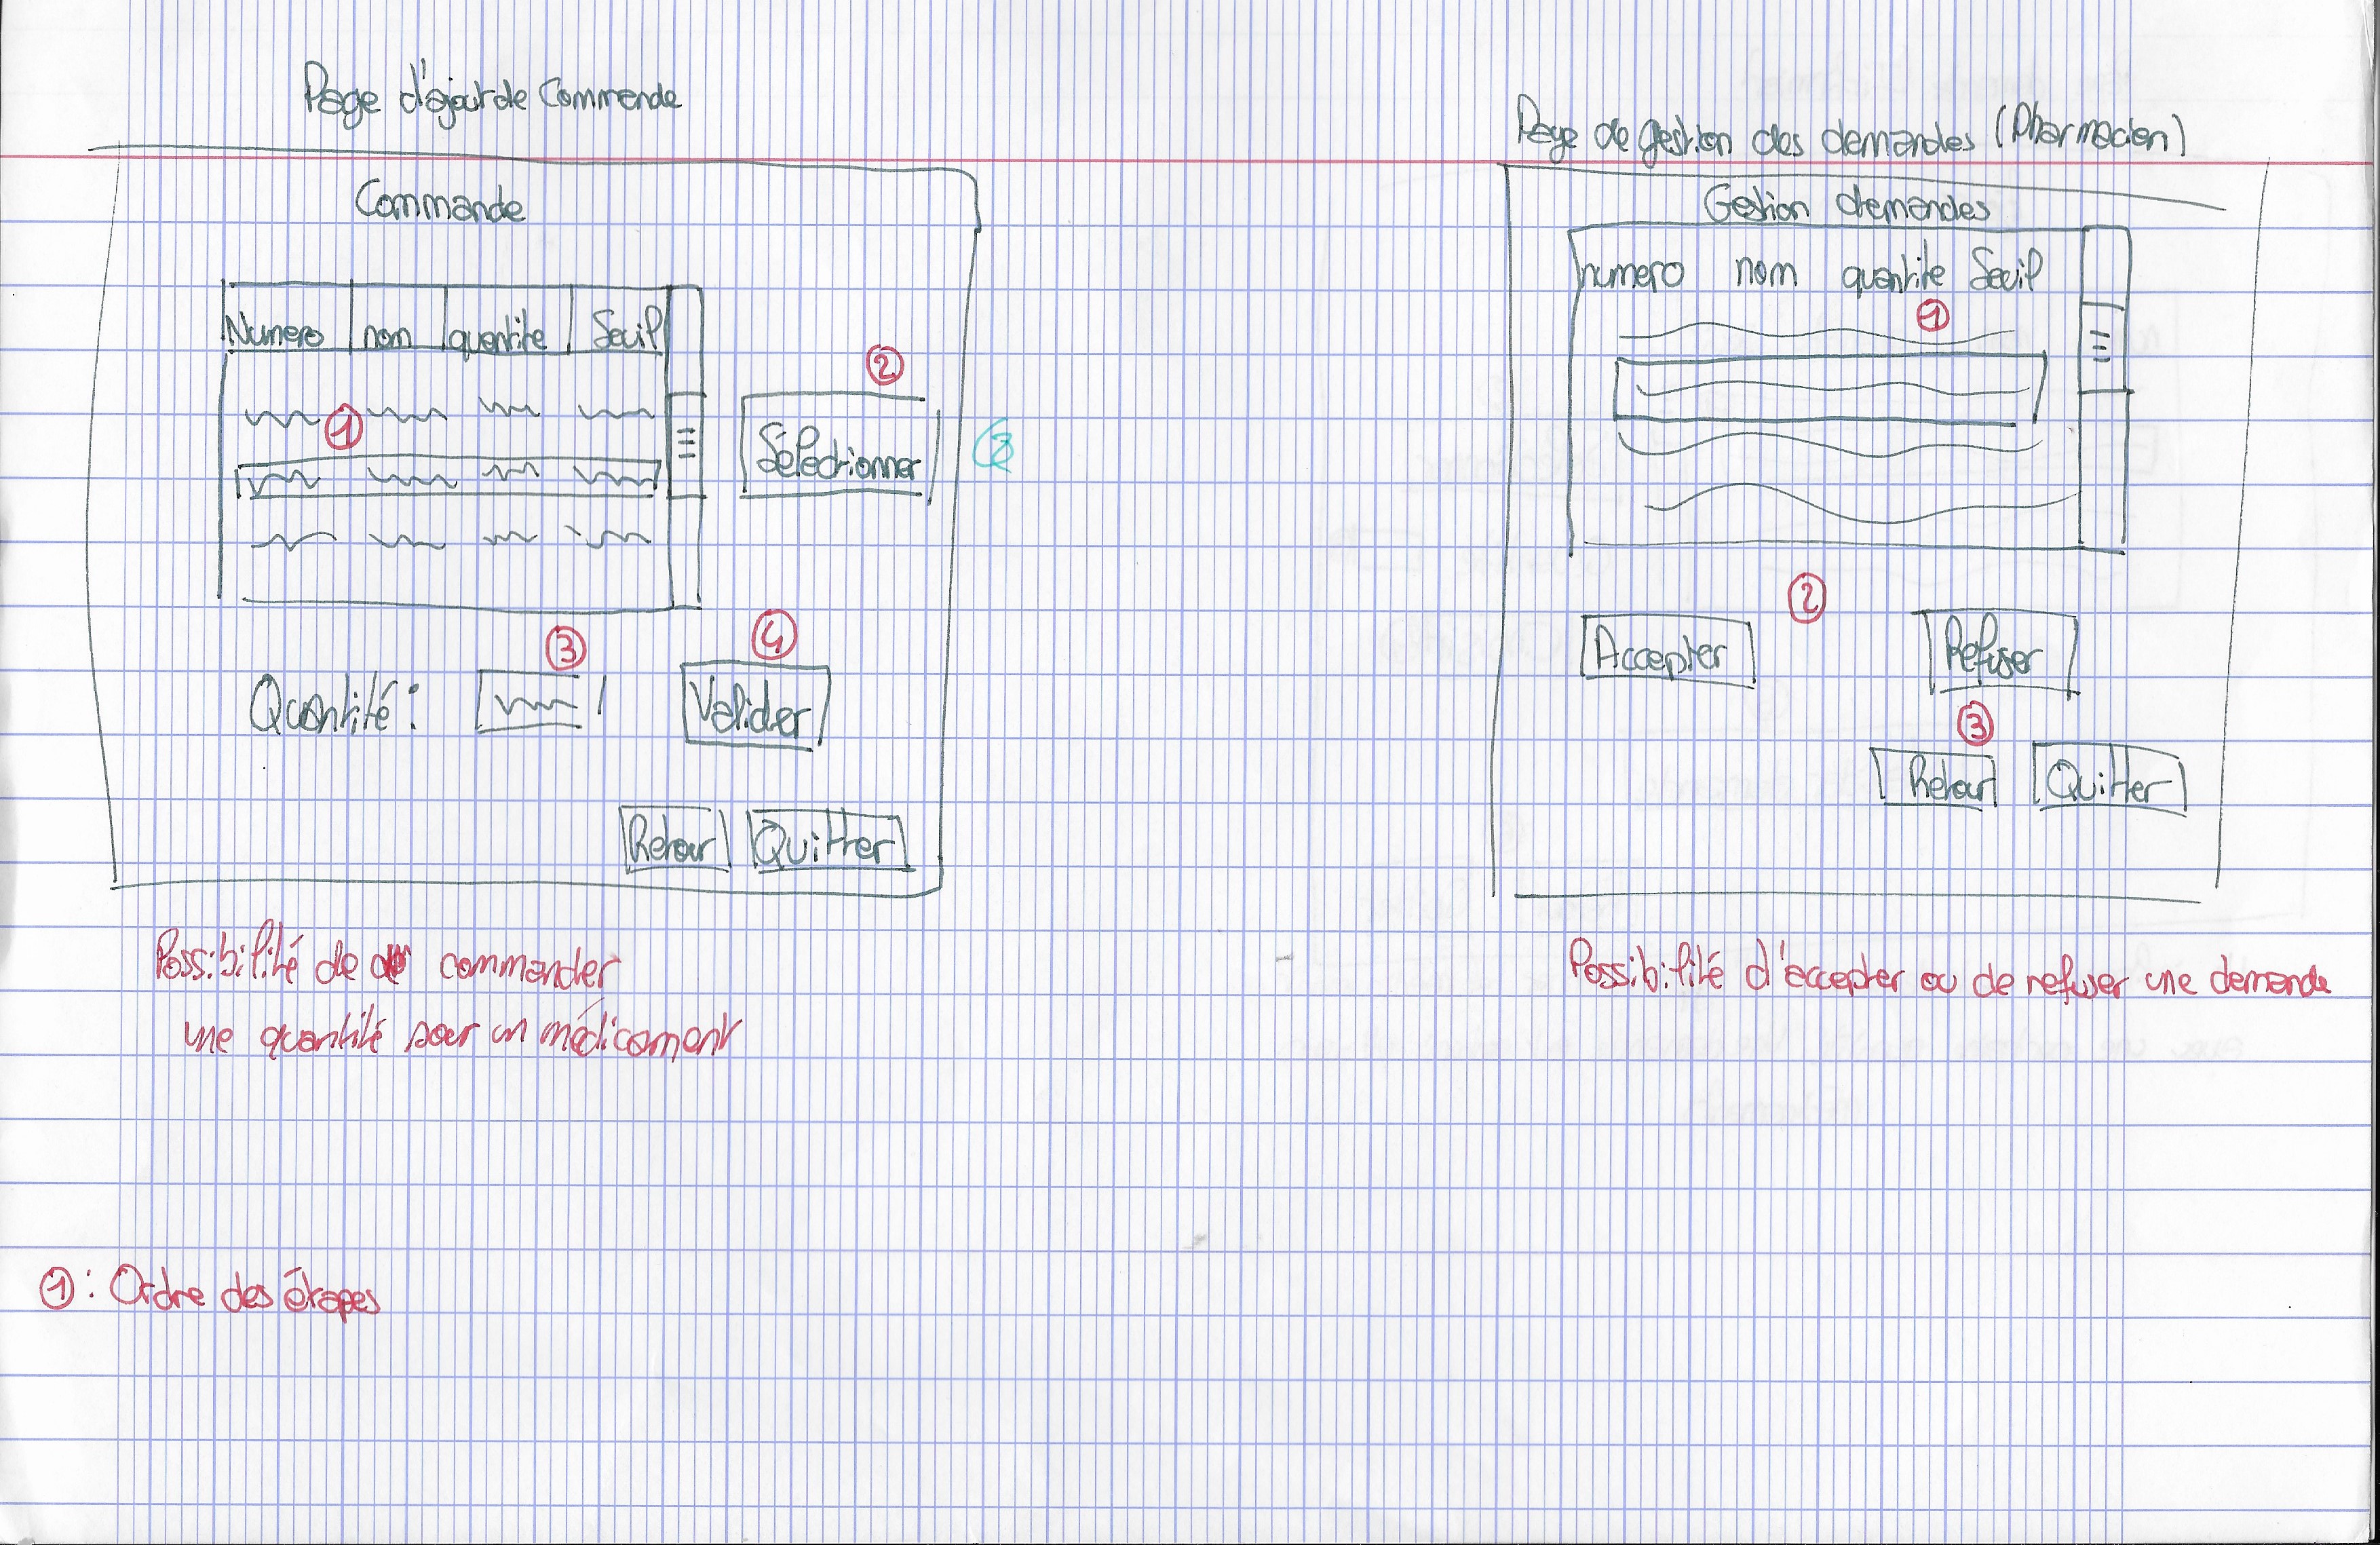 Page d'ajout de Commande
Commande
Numero nom quantite Seuil
①
②
Sélectionner
②
③
④
Quantité :
Valider
Retour Quitter
Possibilité de commander
une quantité pour un médicament
①: Ordre des étapes
Page de gestion des demandes (Pharmacien)
Gestion demandes
numero nom quantite Seuil
①
②
Accepter Refuser
③
Retour Quitter
Possibilité d'accepter ou de refuser une demande